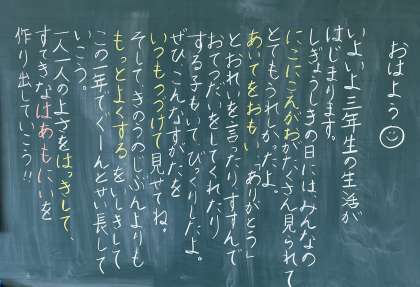 おはよう
いよいよ三年生の生活が
はじまります。
しぎょうしきの日にはみんなの
にこにこえがおがたくさん見られて
とてもうれしかったよ。
あいてをおもい、「ありがとう」
とおれいを言ったりすすんで
おてつだいをしてくれたり
する子もいてびっくりしたよ。
ぜひこんなすがたを
いつもつづけて見せてね。
そしてきのうのじぶんよりも
もっとよくするをいしきして
この一年でぐーんとせい長して
いこう。
一人一人のよさをはっきして、
すてきなはあもにいを
作り出していこう!!